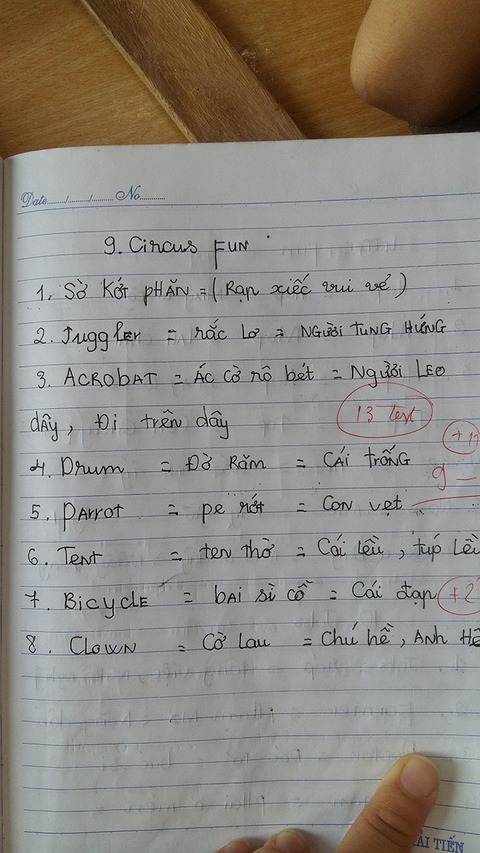 Date....../....../...... No............
9. Circus FUN
1. Sờ Kớt pHĂN = ( Rạp xiếc vui vẻ )
2. Juggler = rắc lơ = NGười TUNG HỨNG
3. ACROBAT = Ác cờ rô bét = Người LEO
dây, Đi trên dây
13 test
4. Drum = Đờ Răm = CÁI TRỐNG
9 –
5. pArrot = pe rớt = CON vẹt
6. TENT = ten thờ = Cái lều, túp lều
7. BicyclE = bAi sì cồ = Cái đạp +2
8. CLOWN = Cờ lau = Chú hề, ANH HỀ
ẢI TIẾN